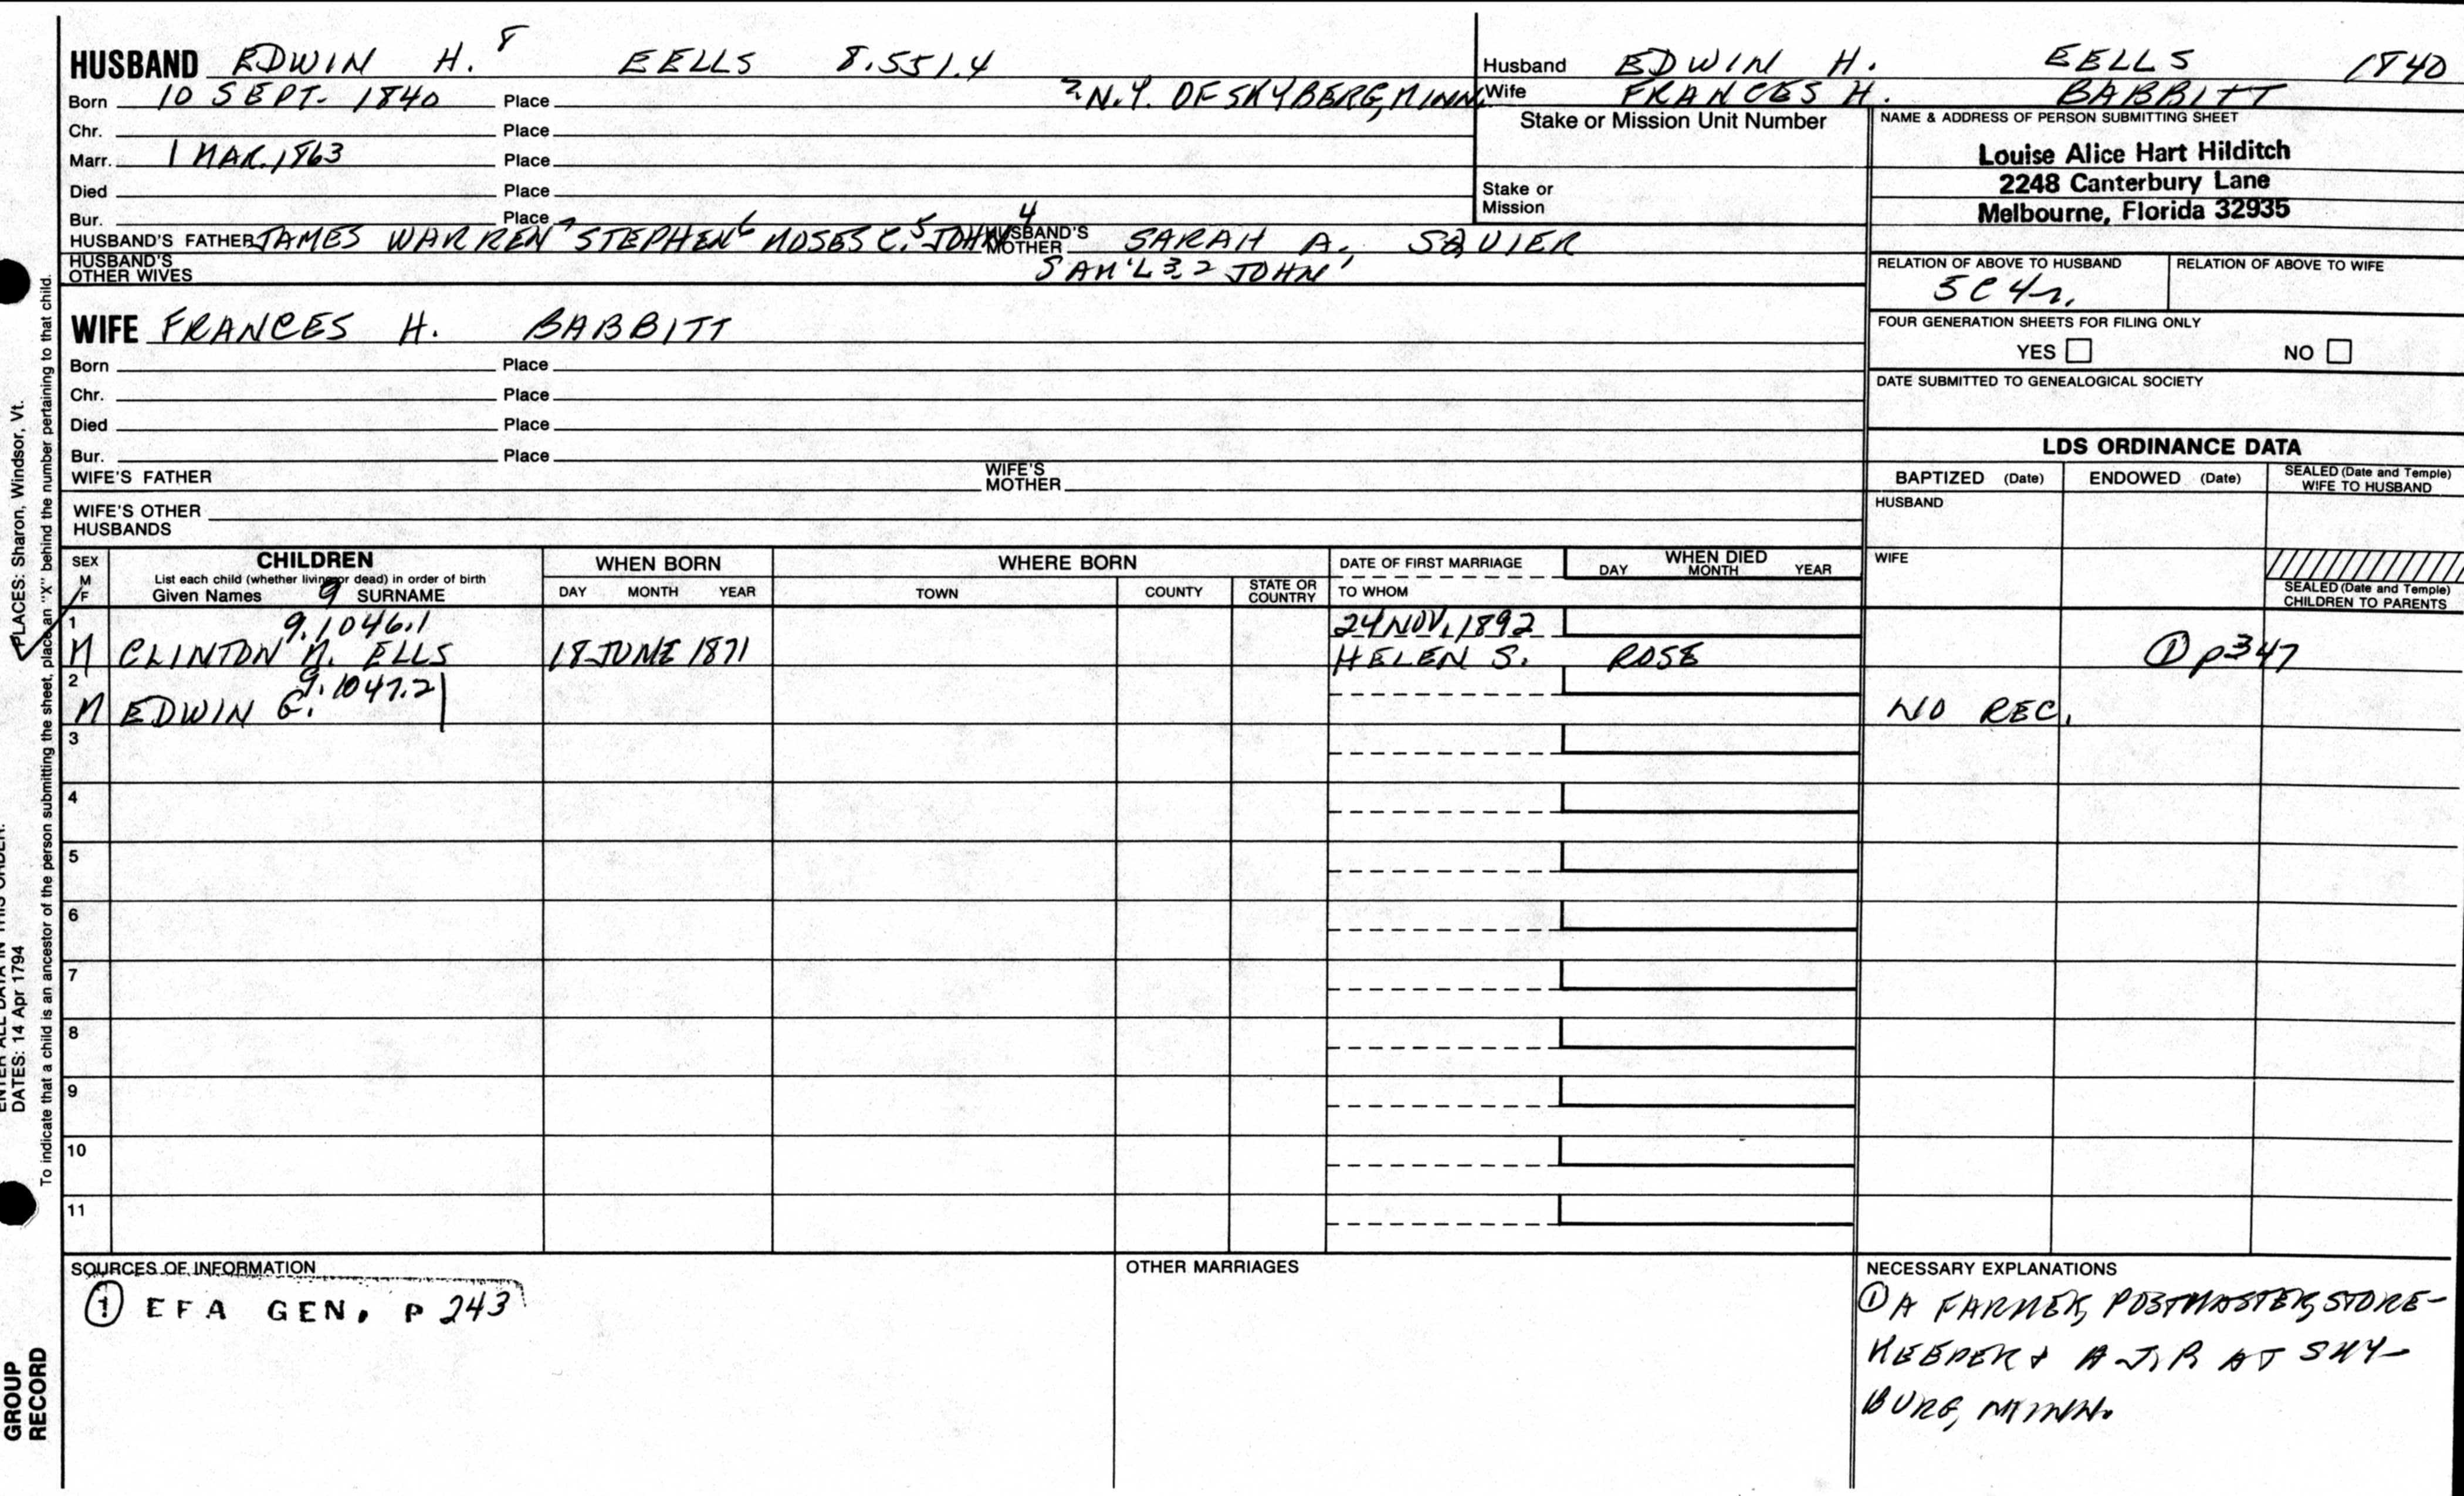 HUSBAND EDWIN H. 8 EELLS 8.551.4
Born 10 SEPT. 1840 Place ?N.Y. OF SKYBERG, MINN.
Chr. Place
Marr. 1 MAR. 1863 Place
Died Place
Bur. Place
HUSBAND'S FATHER JAMES WARREN 7 STEPHEN 6 MOSES C. 5 JOHN 4 HUSBAND'S MOTHER SARAH A. SQUIER
HUSBAND'S OTHER WIVES SAM'L 3, 2 JOHN 1
Husband EDWIN H. EELLS 1840
Wife FRANCES H. BABBITT
Stake or Mission Unit Number
Stake or
Mission
NAME & ADDRESS OF PERSON SUBMITTING SHEET
Louise Alice Hart Hilditch
2248 Canterbury Lane
Melbourne, Florida 32935
RELATION OF ABOVE TO HUSBAND RELATION OF ABOVE TO WIFE
5C 4r.
FOUR GENERATION SHEETS FOR FILING ONLY
YES NO
DATE SUBMITTED TO GENEALOGICAL SOCIETY
WIFE FRANCES H. BABBITT
Born Place
Chr. Place
Died Place
Bur. Place
WIFE'S FATHER WIFE'S MOTHER
WIFE'S OTHER
HUSBANDS
LDS ORDINANCE DATA
BAPTIZED (Date) ENDOWED (Date) SEALED (Date and Temple) WIFE TO HUSBAND
HUSBAND
WIFE
SEALED (Date and Temple)
CHILDREN TO PARENTS
SEX M F CHILDREN WHEN BORN WHERE BORN DATE OF FIRST MARRIAGE WHEN DIED
List each child (whether living or dead) in order of birth
Given Names 9 SURNAME DAY MONTH YEAR TOWN COUNTY STATE OR COUNTRY TO WHOM DAY MONTH YEAR
1 9.1046.1 24 NOV. 1892
M CLINTON M. ELLS 18 JUNE 1871 HELEN S. ROSE ① p347
2 9.1047.2
M EDWIN G. NO REC.
3
4
5
6
7
8
9
10
11
SOURCES OF INFORMATION
① EFA GEN. P 243
OTHER MARRIAGES
NECESSARY EXPLANATIONS
① A FARMER, POSTMASTER, STORE-
KEEPER & A J.P. AT SKY-
BURG, MINN.
PLACES: Sharon, Windsor, Vt.
To indicate that a child is an ancestor of the person submitting the sheet, place an "X" behind the number pertaining to that child.
ENTER ALL DATA IN THIS ORDER:
DATES: 14 Apr 1794
GROUP
RECORD